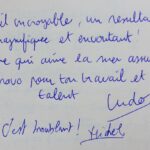 il incroyable, un resultat
magnifique et envoutant!
re qui aime la mer assu
ravo pour ton travail et
talent
Ludo
c'est troublant!